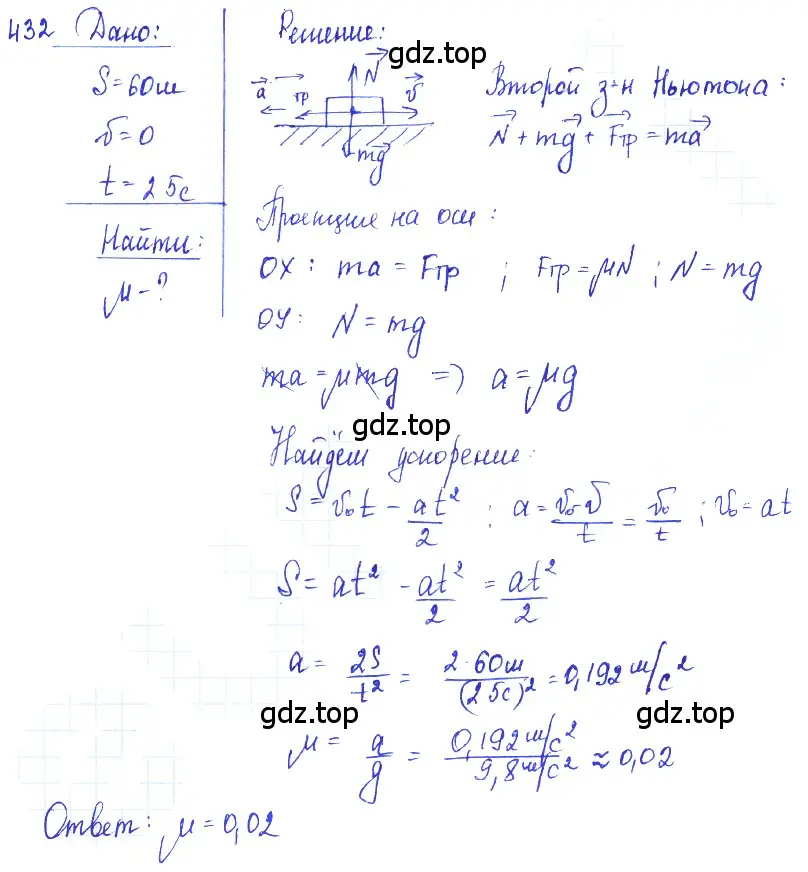 432 Дано:
S=60м
v=0
t=25с
Найти:
μ-?
Решение:
gdz.top
N
a тр v
mg
Второй з-н Ньютона:
N+mg+Fтр=ma
Проекции на оси:
OX: ma=Fтр ; Fтр=μN ; N=mg
OY: N=mg
ma=μmg => a=μg
gdz.top
Найдём ускорение:
S=v₀t-at²/2 ; a=(v₀-v)/t=v₀/t ; v₀=at
S=at²-at²/2=at²/2
a=2S/t²=2·60м/(25с)²=0,192 м/с²
gdz.top gdz.top
μ=a/g=0,192 м/с²/9,8 м/с²≈0,02
Ответ: μ=0,02
gdz.top